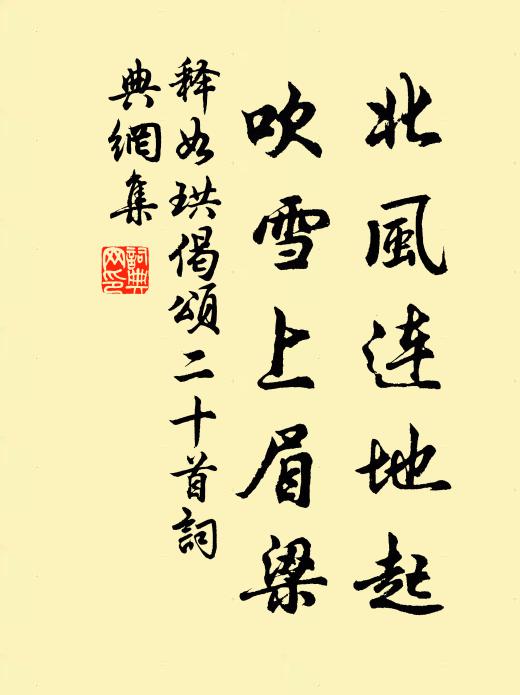 北風连地起
吹雪上眉梁
释如珙偈頌二十首詞
典網集
詞典
网印